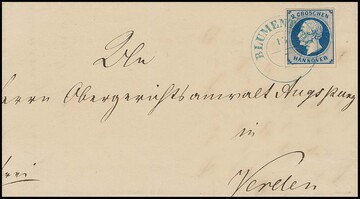 2 GROSCHEN
HANNOVER
BLUMEN
An
Herrn Obergerichtsanwalt Augspurg
in
frei
Verden